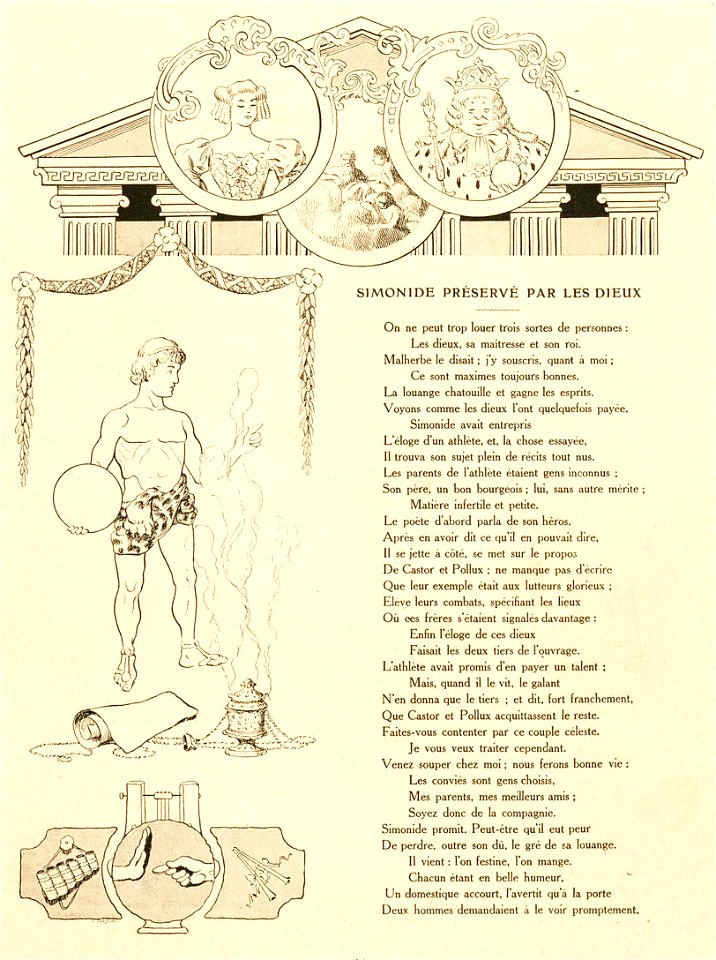 SIMONIDE PRÉSERVÉ PAR LES DIEUX
On ne peut trop louer trois sortes de personnes :
Les dieux, sa maîtresse et son roi.
Malherbe le disait ; j'y souscris, quant à moi ;
Ce sont maximes toujours bonnes.
La louange chatouille et gagne les esprits.
Voyons comme les dieux l'ont quelquefois payée.
Simonide avait entrepris
L'éloge d'un athlète, et, la chose essayée,
Il trouva son sujet plein de récits tout nus.
Les parents de l'athlète étaient gens inconnus ;
Son père, un bon bourgeois ; lui, sans autre mérite ;
Matière infertile et petite.
Le poète d'abord parla de son héros.
Après en avoir dit ce qu'il en pouvait dire,
Il se jette à côté, se met sur le propos
De Castor et Pollux ; ne manque pas d'écrire
Que leur exemple était aux lutteurs glorieux ;
Elève leurs combats, spécifiant les lieux
Où ces frères s'étaient signalés davantage :
Enfin l'éloge de ces dieux
Faisait les deux tiers de l'ouvrage.
L'athlète avait promis d'en payer un talent ;
Mais, quand il le vit, le galant
N'en donna que le tiers ; et dit, fort franchement,
Que Castor et Pollux acquittassent le reste.
Faites-vous contenter par ce couple céleste.
Je vous veux traiter cependant.
Venez souper chez moi ; nous ferons bonne vie :
Les conviés sont gens choisis,
Mes parents, mes meilleurs amis ;
Soyez donc de la compagnie.
Simonide promit. Peut-être qu'il eut peur
De perdre, outre son dû, le gré de sa louange.
Il vient : l'on festine, l'on mange.
Chacun étant en belle humeur,
Un domestique accourt, l'avertit qu'à la porte
Deux hommes demandaient à le voir promptement.